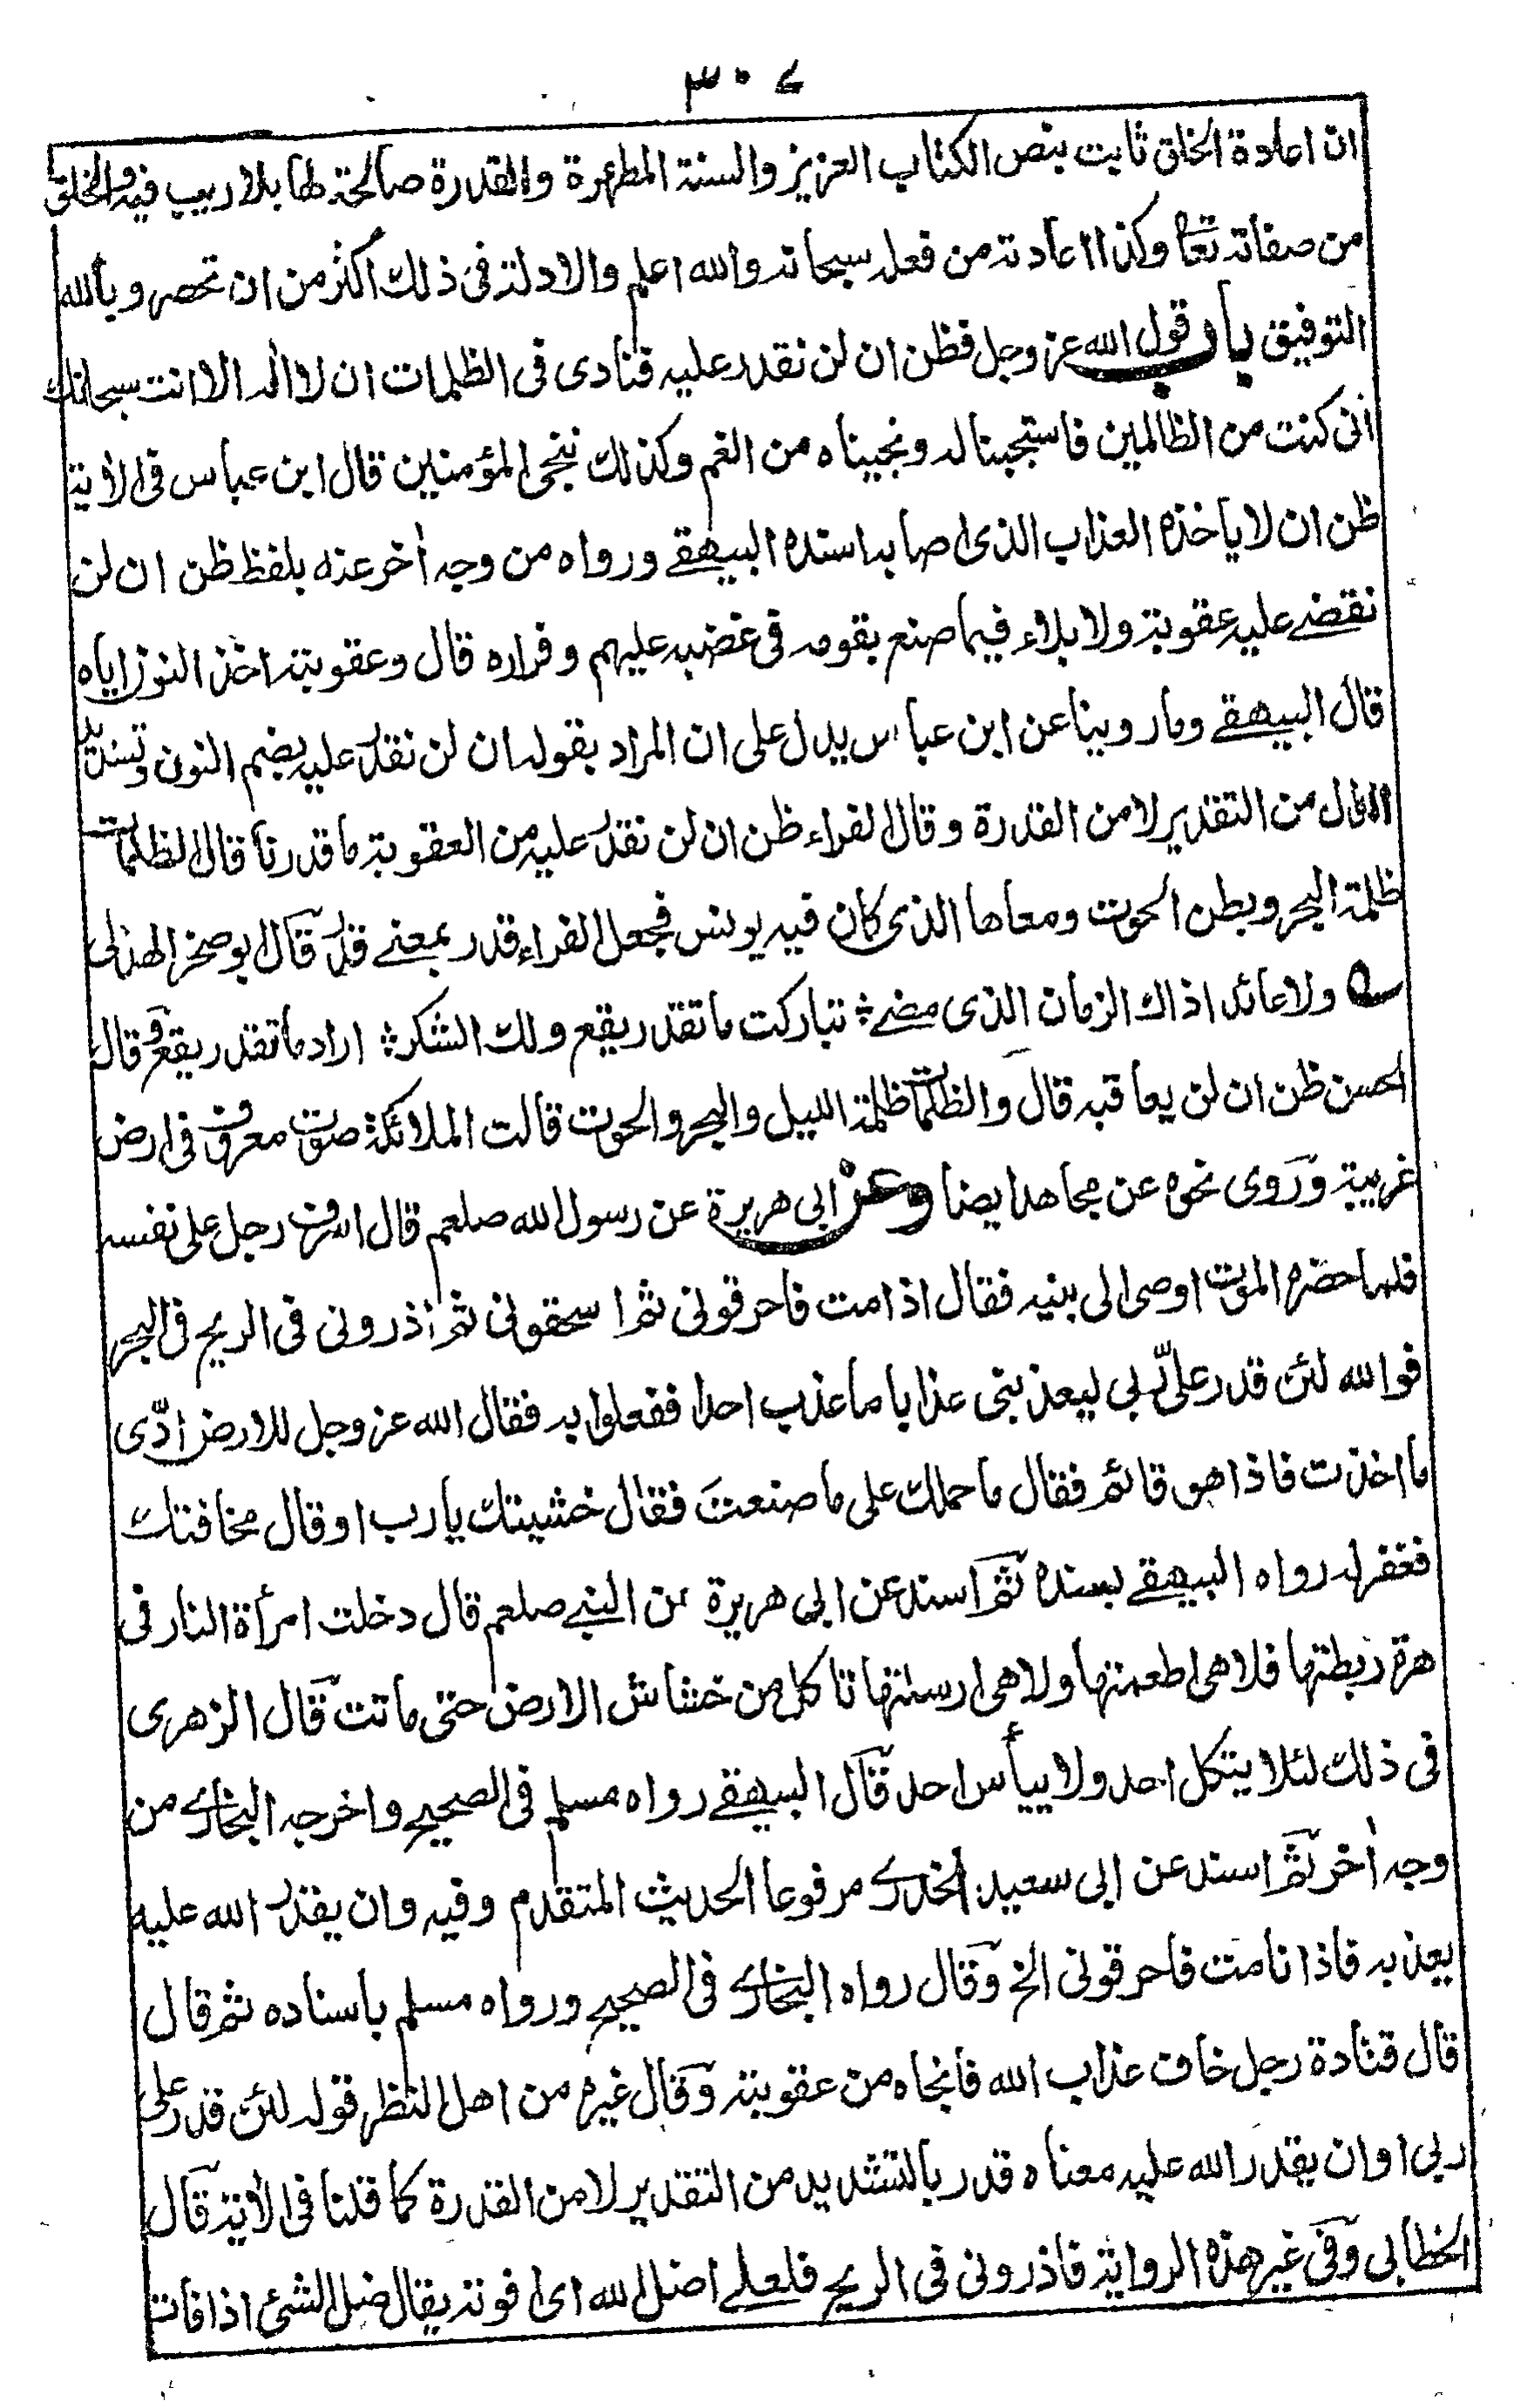 ٣٠٧
ان اعادة الخلق ثابت بنص الكتاب العزيز والسنة المطهرة والقدرة صالحة لها بلا ريب فيه والخلق
من صفاته تعا وكذا اعادته من فعله سبحانه والله اعلم والادلة فى ذلك اكثر من ان تحصر وبالله
التوفيق باب قول الله عز وجل فظن ان لن نقدر عليه فنادى فى الظلمات ان لا اله الا انت سبحانك
انى كنت من الظالمين فاستجبنا له ونجيناه من الغم وكذلك ننجى المؤمنين قال ابن عباس فى الأية
ظن ان لا ياخذه العذاب الذى اصابه اسنده البيهقے ورواه من وجه أخر عنه بلفظ ظن ان لن
نقضے عليه عقوبة ولا بلاء فيما صنع بقومه فى غضبه عليهم وفراره قال وعقوبته اخذ النون اياه
قال البيهقے وما روينا عن ابن عباس يدل على ان المراد بقوله ان لن نقدّر عليه بضم النون وتشديد
الدال من التقدير لا من القدرة وقال الفراء ظن ان لن نقدّر عليه من العقوبة ما قدرنا قال الظلمات
ظلمة البحر وبطن الحوت ومعاها الذى كان فيه يونس فجعل الفراء قدر بمعنے قدّر قال ابو صخر الهذلى
ولا عائدا ذاك الزمان الذى مضے ؛ تباركت ما تقدر يقع ولك الشكر ؛ اراد ما تقدر يقع وقال
الحسن ظن ان لن يعاقبه قال والظلمات ظلمة الليل والبحر والحوت قالت الملائكة صوت معروف فى ارض
غريبة وروى نحوه عن مجاهد ايضا وعن ابى هريرة عن رسول الله صلعم قال اسرف رجل على نفسه
فلما حضره الموت اوصى الى بنيه فقال اذا مت فاحرقونى ثم اسحقونى ثم اذرونى فى الريح فى البحر
فوالله لئن قدر علىّ ربى ليعذبنى عذابا ما عذب احدا ففعلوا به فقال الله عز وجل للارض ادّى
ما اخذت فاذا هو قائم فقال ما حملك على ما صنعت فقال خشيتك يارب او قال مخافتك
فغفر له رواه البيهقے بسنده ثم اسند عن ابى هريرة عن النبے صلعم قال دخلت امرأة النار فى
هرة ربطتها فلا هى اطعمتها ولا هى ارسلتها تاكل من خشاش الارض حتى ماتت قال الزهرى
فى ذلك لئلا يتكل احد ولا ييأس احد قال البيهقے رواه مسلم فى الصحيح واخرجه البخارے من
وجه أخر ثم اسند عن ابى سعيد الخدرے مرفوعا الحديث المتقدم وفيه وان يقدر الله عليه
يعذبه فاذا انا مت فاحرقونى الخ وقال رواه البخارے فى الصحيح ورواه مسلم باسناده ثم قال
قال قتادة رجل خاف عذاب الله فانجاه من عقوبته وقال غيره من اهل النظر قوله لئن قدر على
ربى او ان يقدر الله عليه معناه قدر بالتشديد من التقدير لا من القدرة كما قلنا فى الأية قال
الخطابى وفى غير هذه الرواية فاذرونى فى الريح فلعلے اضل الله اى افوته يقال ضل الشئ اذا فات